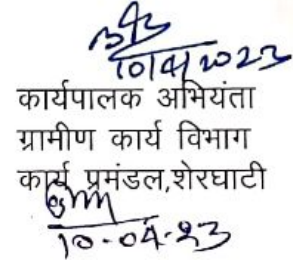 10/4/2023
कार्यपालक अभियंता
ग्रामीण कार्य विभाग
कार्य प्रमंडल,शेरघाटी
10-04-23